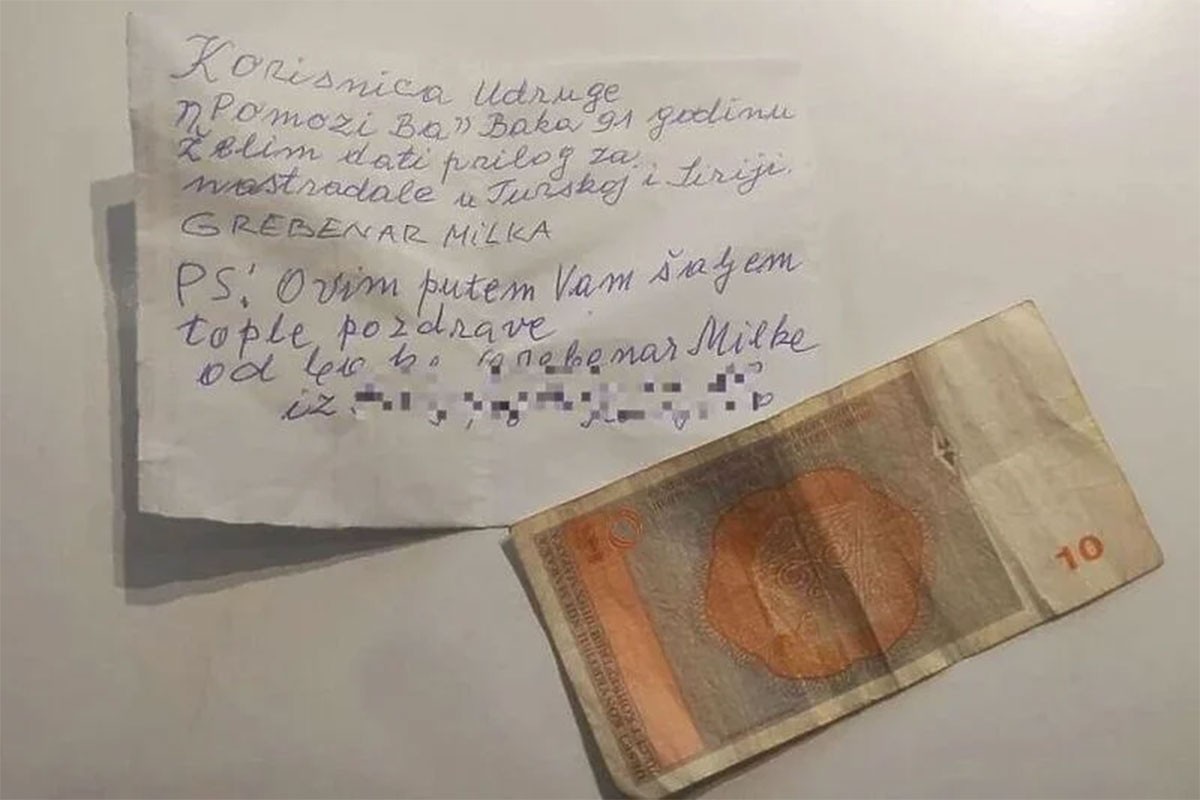 Korisnica Udruge
"Pomozi Ba" Baka 91 godinu
Želim dati prilog za
nastradale u Turskoj i Siriji.
GREBENAR MILKA
PS: Ovim putem Vam šaljem
tople pozdrave
od Grebenar Milke
iz
10
10